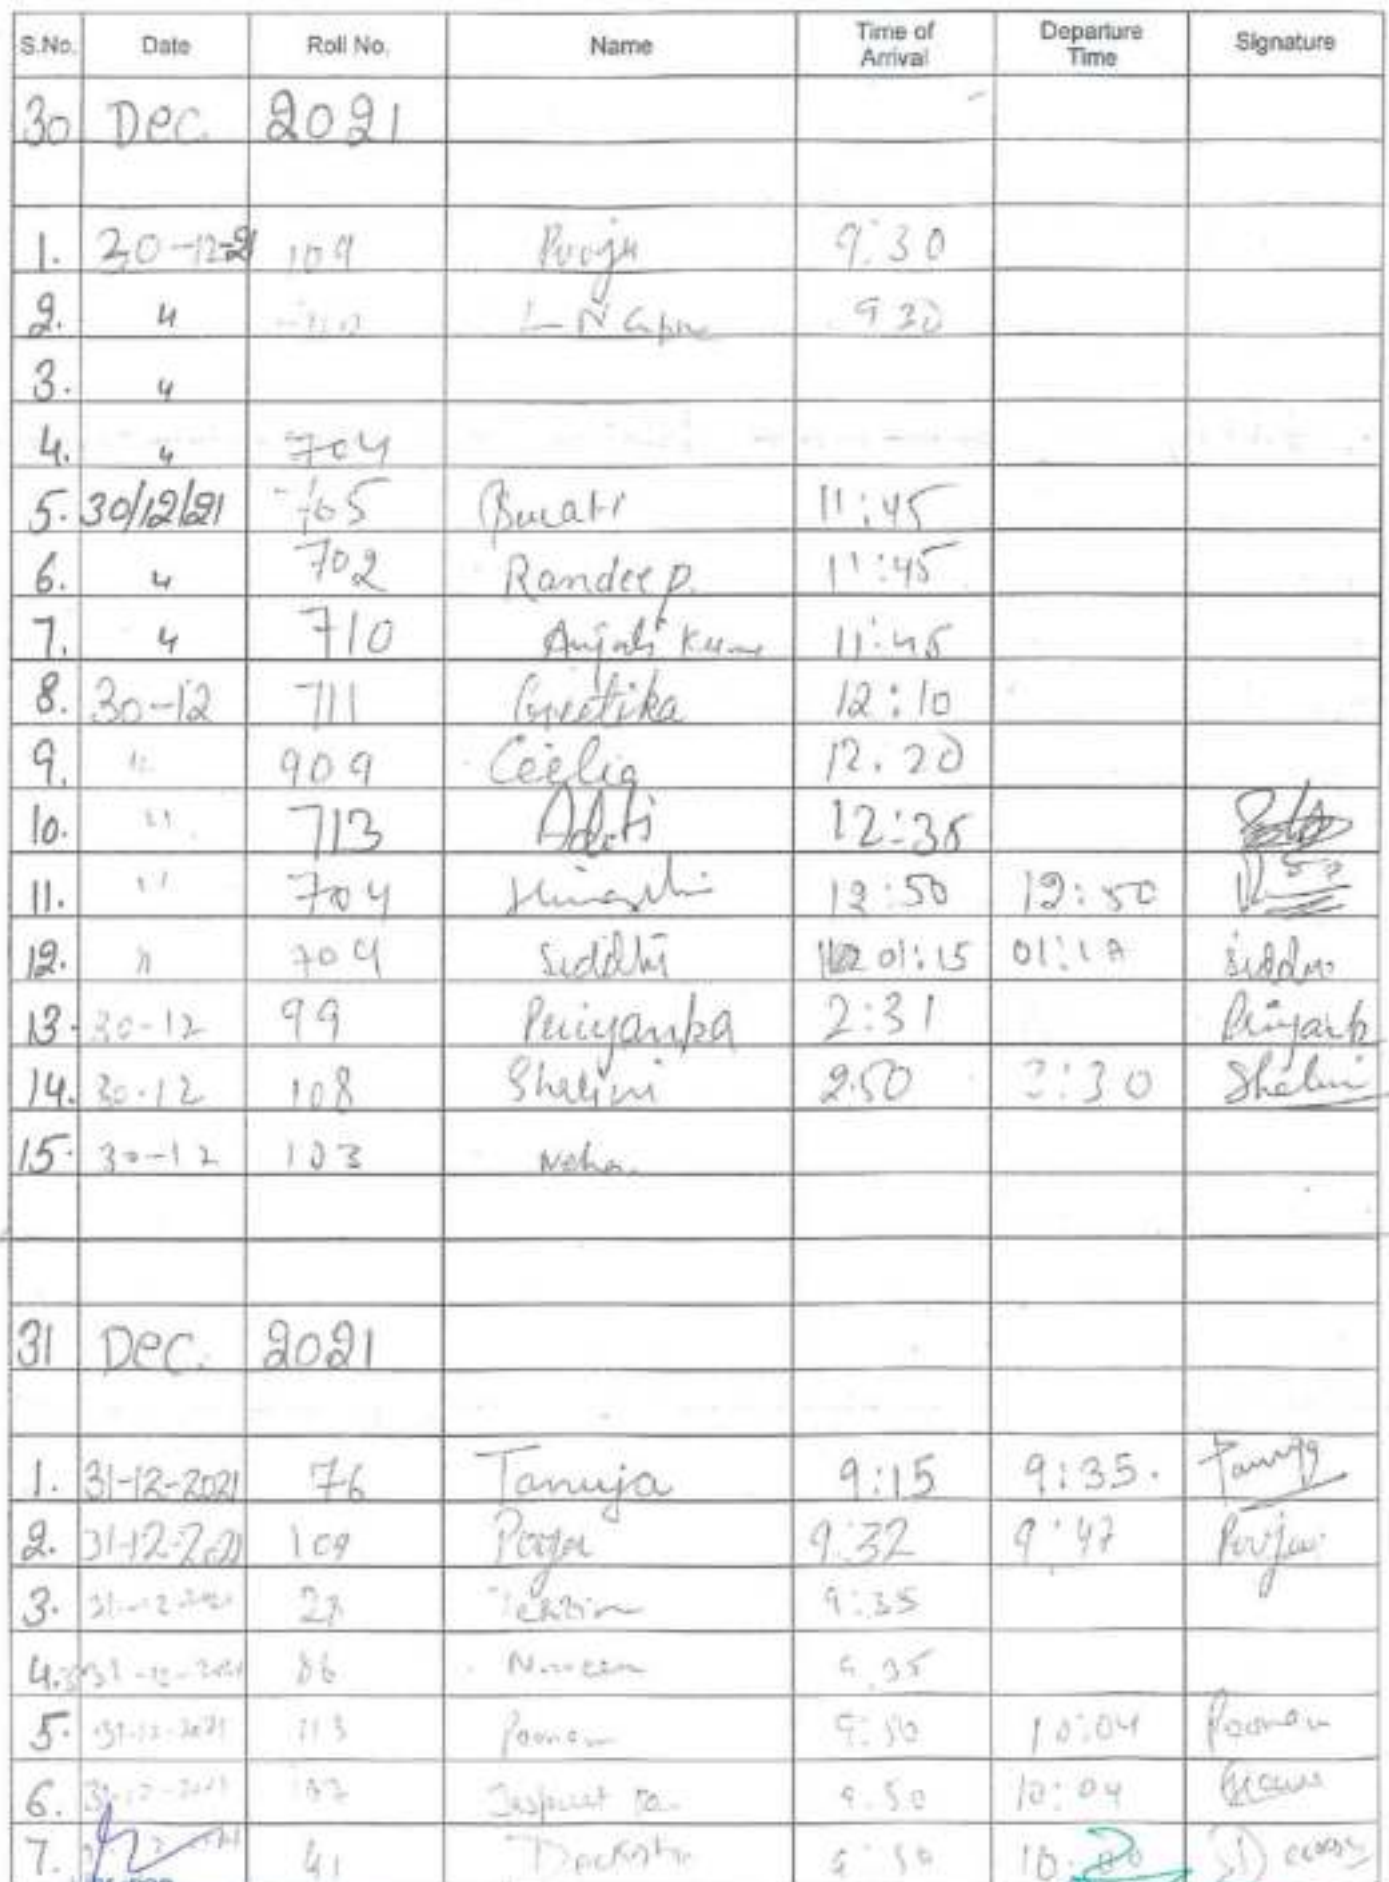 S.No. Date Roll No. Name Time of Arrival Departure Time Signature
30 Dec. 2021
1. 30-12-21 109 Pooja 9:30
2. " L N 9 30
3. "
4. " 704
5. 30/12/21 705 11:45
6. " 702 Randeep. 11:45
7. " 710 Anjali 11:45
8. 30-12 711 Geetika 12:10
9. " 909 12.20
10. " 713 Aditi 12:35
11. " 704 12:50 12:50
12. " 704 Siddhi 01:15 Siddhi
13. 30-12 99 Priyanka 2:31 Priyanka
14. 30-12 108 Shalini 2:50 3:30 Shalini
15. 30-12 103 Neha
31 Dec. 2021
1. 31-12-2021 76 Tanuja 9:15 9:35. Tanuja
2. 31-12-2021 109 Pooja 9:32 9:47 Pooja
3. 31-12-2021 9:35
4. 31-12-2021 86 9.35
5. 31-12-2021 113 Poonam 9:50 10:04 Poonam
6. 31-12-2021 9.50 10:04
7. 41